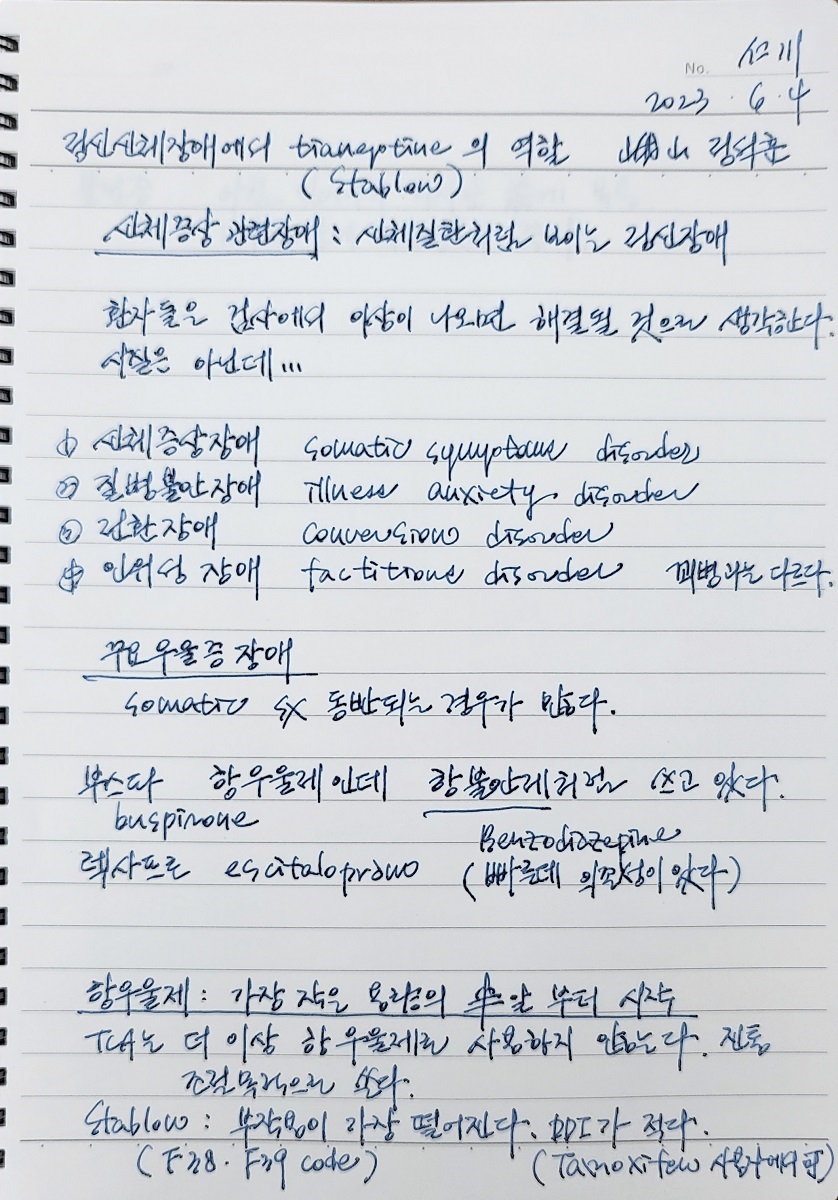 No.
2023. 6. 4
정신신체장애에서 tianeptine 의 역할 김석훈
(Stablon)
신체증상 관련장애 : 신체질환처럼 보이는 정신장애
환자들은 검사에서 이상이 나오면 해결될 것으로 생각한다.
사실은 아닌데...
① 신체증상장애 somatic symptoms disorder
② 질병불안장애 illness anxiety disorder
③ 전환장애 conversion disorder
④ 인위성 장애 factitious disorder 꾀병과는 다르다.
주요우울증장애
somatic sx 동반되는 경우가 많다.
부스파 항우울제인데 항불안제처럼 쓰고 있다.
buspirone Benzodiazepine
렉사프로 escitalopram (빠른데 의존성이 있다)
항우울제 : 가장 작은 용량의 반알 부터 시작
TCA는 더 이상 항우울제로 사용하지 않는다. 진통
조절목적으로 쓴다.
Stablon : 부작용이 가장 떨어진다. DDI가 적다.
(F38. F39 code) (Tamoxifen 사용자에서 可)